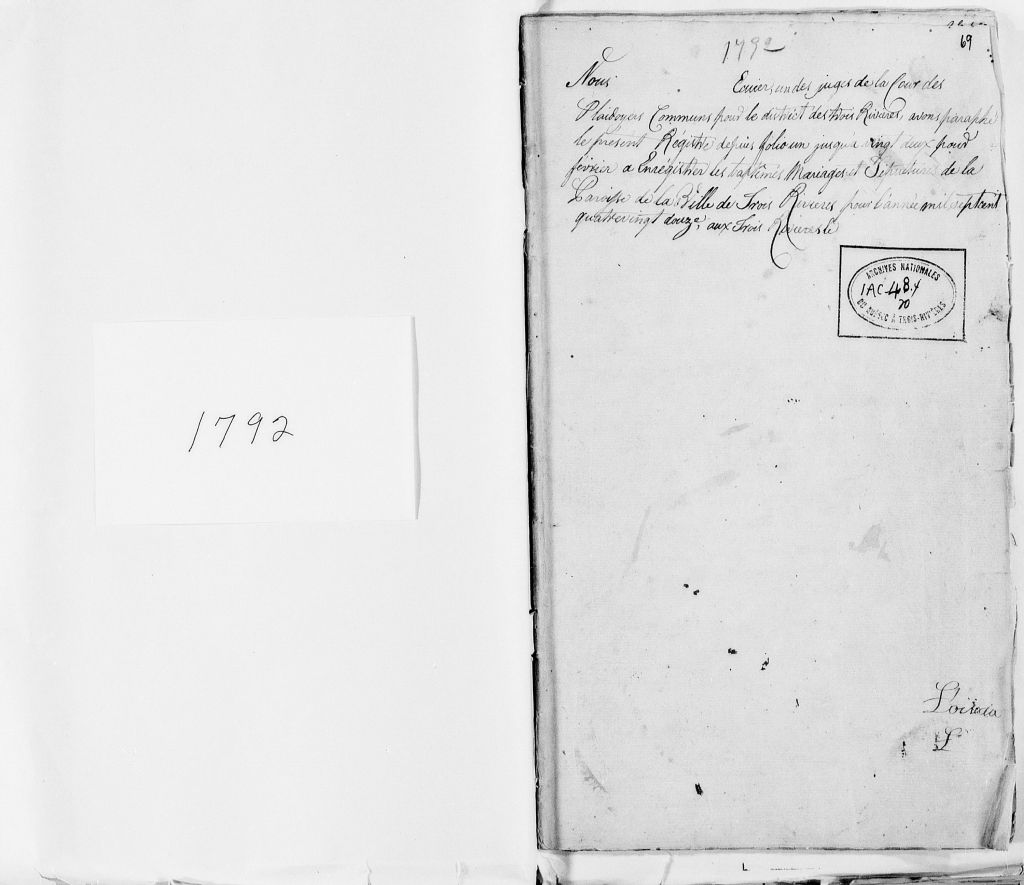 1792
69
1792
Nous Ecuier, un des juges de la Cour des
Plaidoyers Communs pour le district des trois Rivieres, avons paraphé
le présent Registre depuis folio un jusqu'a vingt deux pour
servier a Enrégistrer les baptêmes Mariages et Sépultures de la
Paroisse de la Ville de Trois Rivieres pour l'année mil sept cent
quatre vingt douze, aux Trois Rivieres le
ARCHIVES NATIONALES
1AC-48.4
20
DU QUÉBEC À TROIS-RIVIÈRES